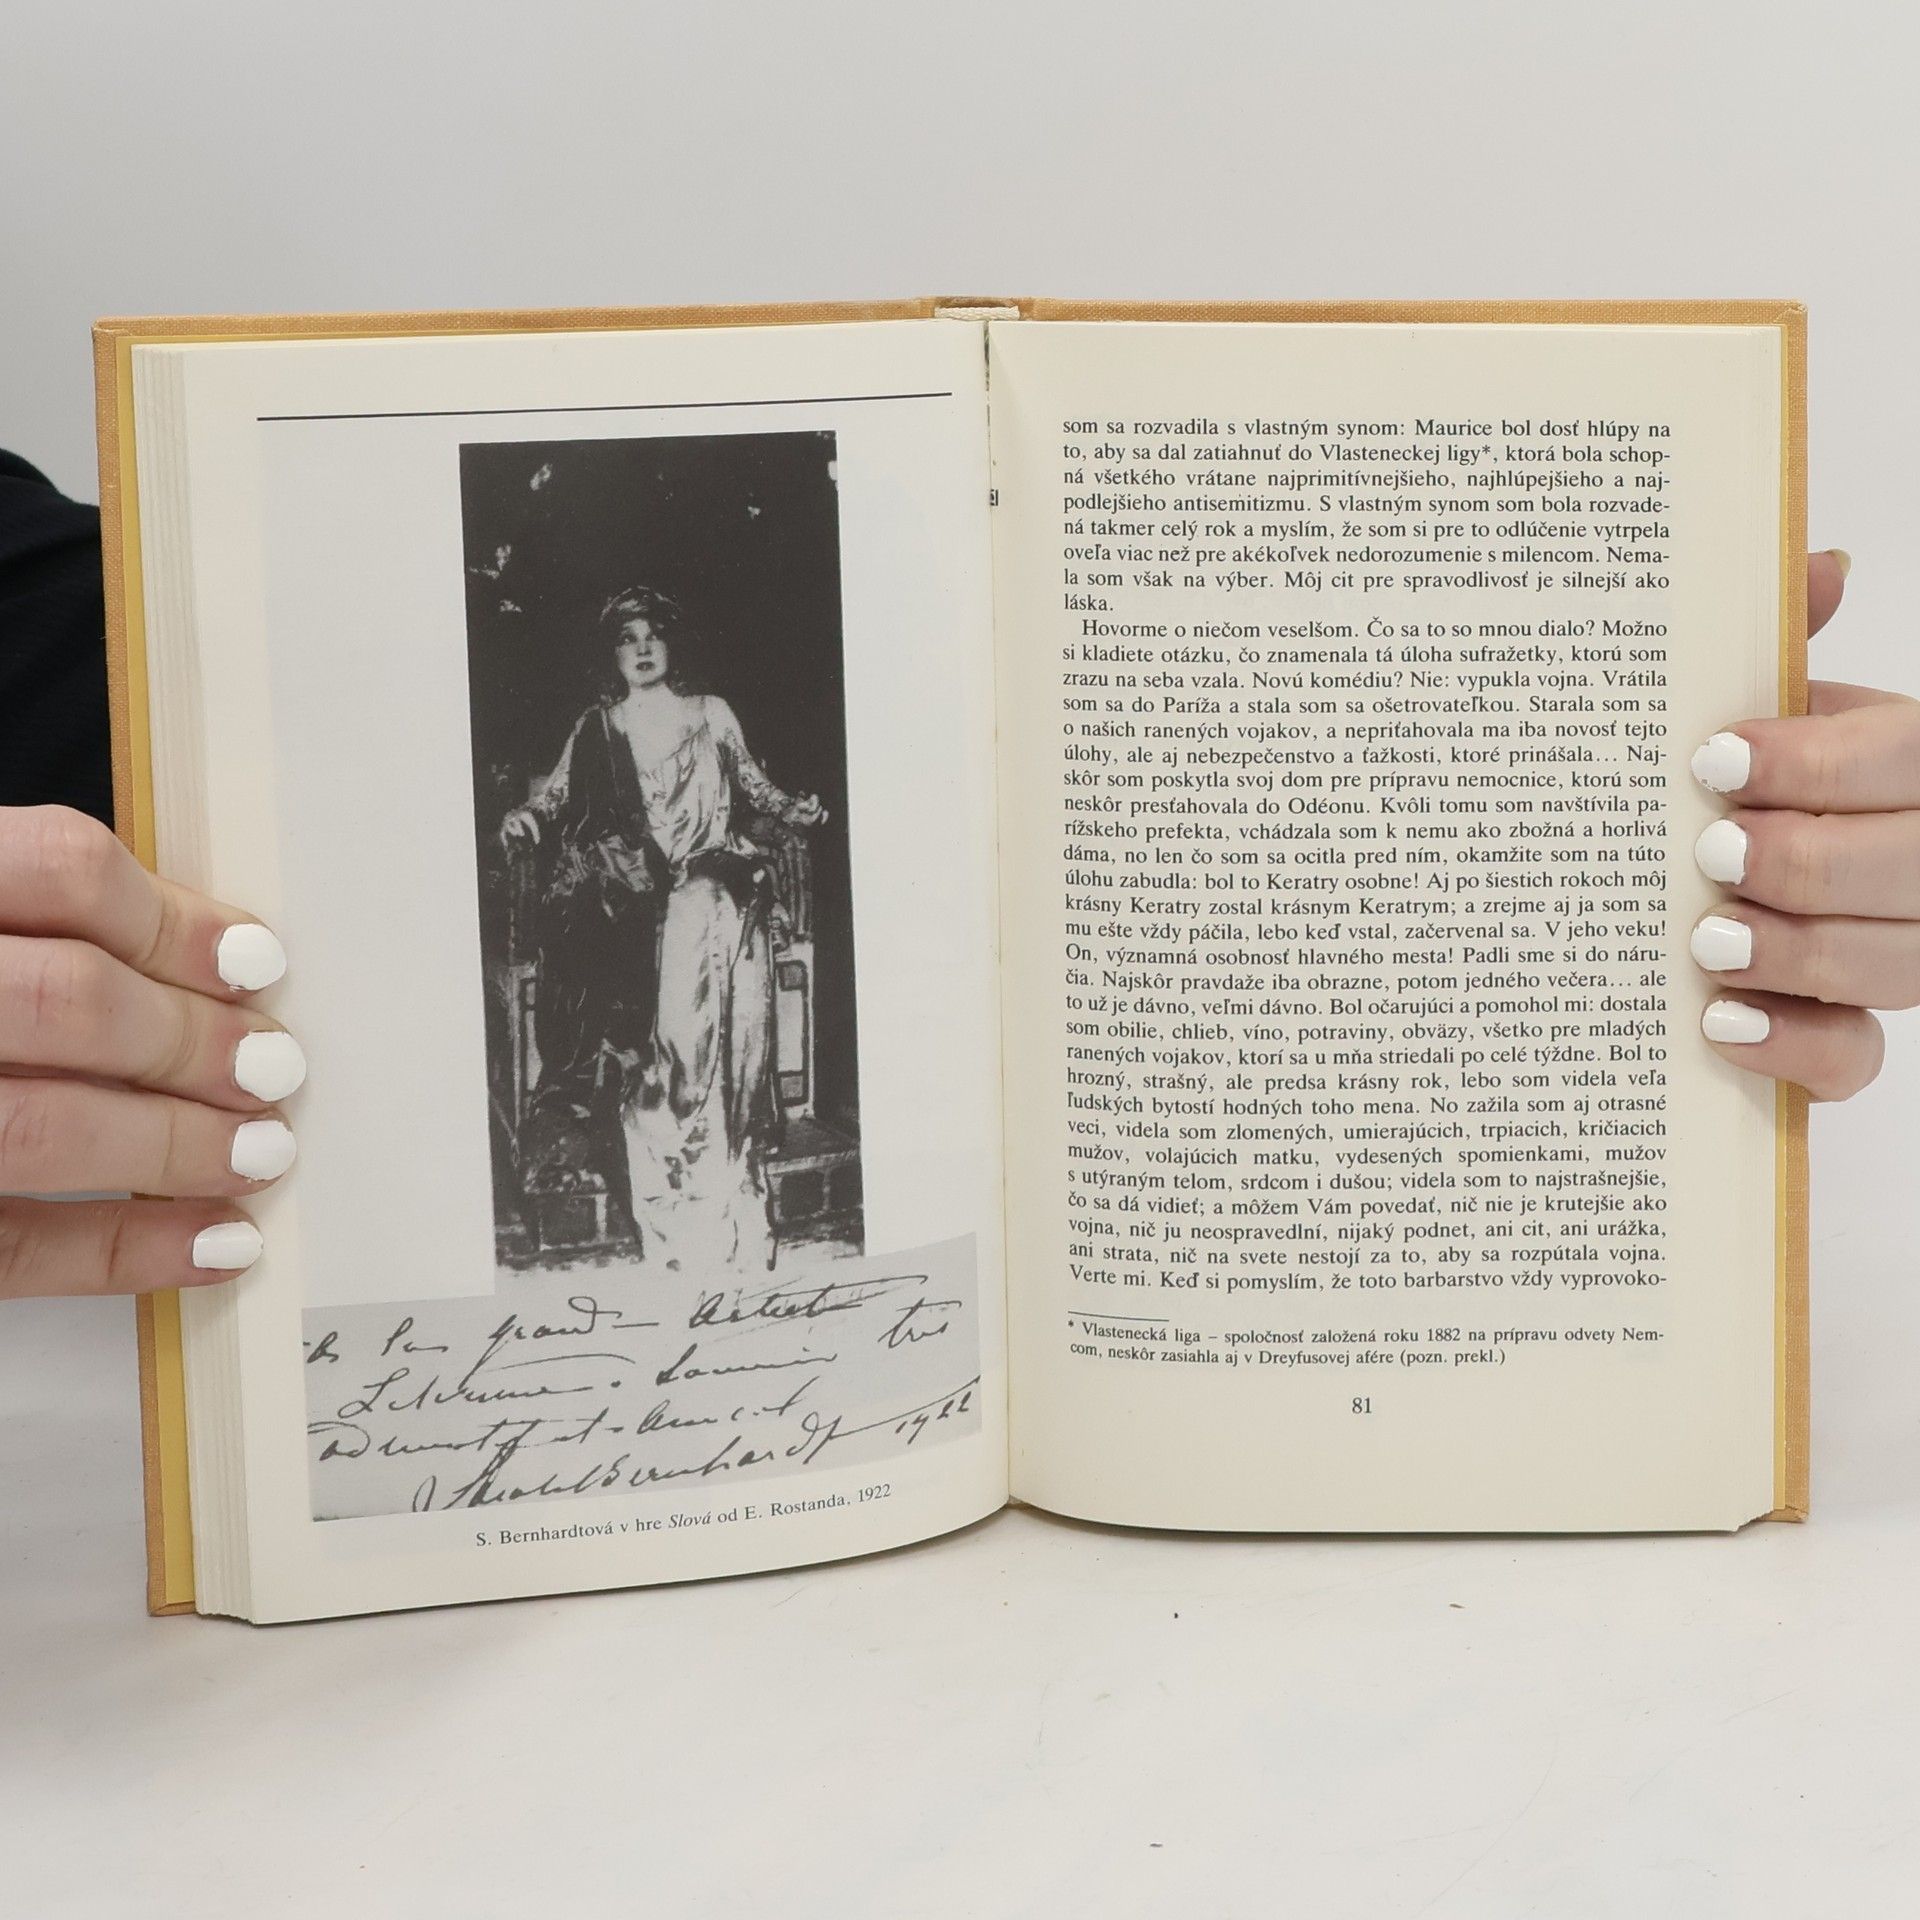 grand Artiste
très
S. Bernhardt 1922
S. Bernhardtová v hre Slová od E. Rostanda, 1922
som sa rozvadila s vlastným synom: Maurice bol dosť hlúpy na
to, aby sa dal zatiahnuť do Vlasteneckej ligy*, ktorá bola schop-
ná všetkého vrátane najprimitívnejšieho, najhlúpejšieho a naj-
podlejšieho antisemitizmu. S vlastným synom som bola rozvade-
ná takmer celý rok a myslím, že som si pre to odlúčenie vytrpela
oveľa viac než pre akékoľvek nedorozumenie s milencom. Nema-
la som však na výber. Môj cit pre spravodlivosť je silnejší ako
láska.
Hovorme o niečom veselšom. Čo sa to so mnou dialo? Možno
si kladiete otázku, čo znamenala tá úloha sufražetky, ktorú som
zrazu na seba vzala. Novú komédiu? Nie: vypukla vojna. Vrátila
som sa do Paríža a stala som sa ošetrovateľkou. Starala som sa
o našich ranených vojakov, a nepriťahovala ma iba novosť tejto
úlohy, ale aj nebezpečenstvo a ťažkosti, ktoré prinášala... Naj-
skôr som poskytla svoj dom pre prípravu nemocnice, ktorú som
neskôr presťahovala do Odéonu. Kvôli tomu som navštívila pa-
rížskeho prefekta, vchádzala som k nemu ako zbožná a horlivá
dáma, no len čo som sa ocitla pred ním, okamžite som na túto
úlohu zabudla: bol to Keratry osobne! Aj po šiestich rokoch môj
krásny Keratry zostal krásnym Keratrym; a zrejme aj ja som sa
mu ešte vždy páčila, lebo keď vstal, začervenal sa. V jeho veku!
On, významná osobnosť hlavného mesta! Padli sme si do náru-
čia. Najskôr pravdaže iba obrazne, potom jedného večera... ale
to už je dávno, veľmi dávno. Bol očarujúci a pomohol mi: dostala
som obilie, chlieb, víno, potraviny, obväzy, všetko pre mladých
ranených vojakov, ktorí sa u mňa striedali po celé týždne. Bol to
hrozný, strašný, ale predsa krásny rok, lebo som videla veľa
ľudských bytostí hodných toho mena. No zažila som aj otrasné
veci, videla som zlomených, umierajúcich, trpiacich, kričiacich
mužov, volajúcich matku, vydesených spomienkami, mužov
s utýraným telom, srdcom i dušou; videla som to najstrašnejšie,
čo sa dá vidieť; a môžem Vám povedať, nič nie je krutejšie ako
vojna, nič ju neospravedlní, nijaký podnet, ani cit, ani urážka,
ani strata, nič na svete nestojí za to, aby sa rozpútala vojna.
Verte mi. Keď si pomyslím, že toto barbarstvo vždy vyprovoko-
* Vlastenecká liga – spoločnosť založená roku 1882 na prípravu odvety Nem-
com, neskôr zasiahla aj v Dreyfusovej afére (pozn. prekl.)
81